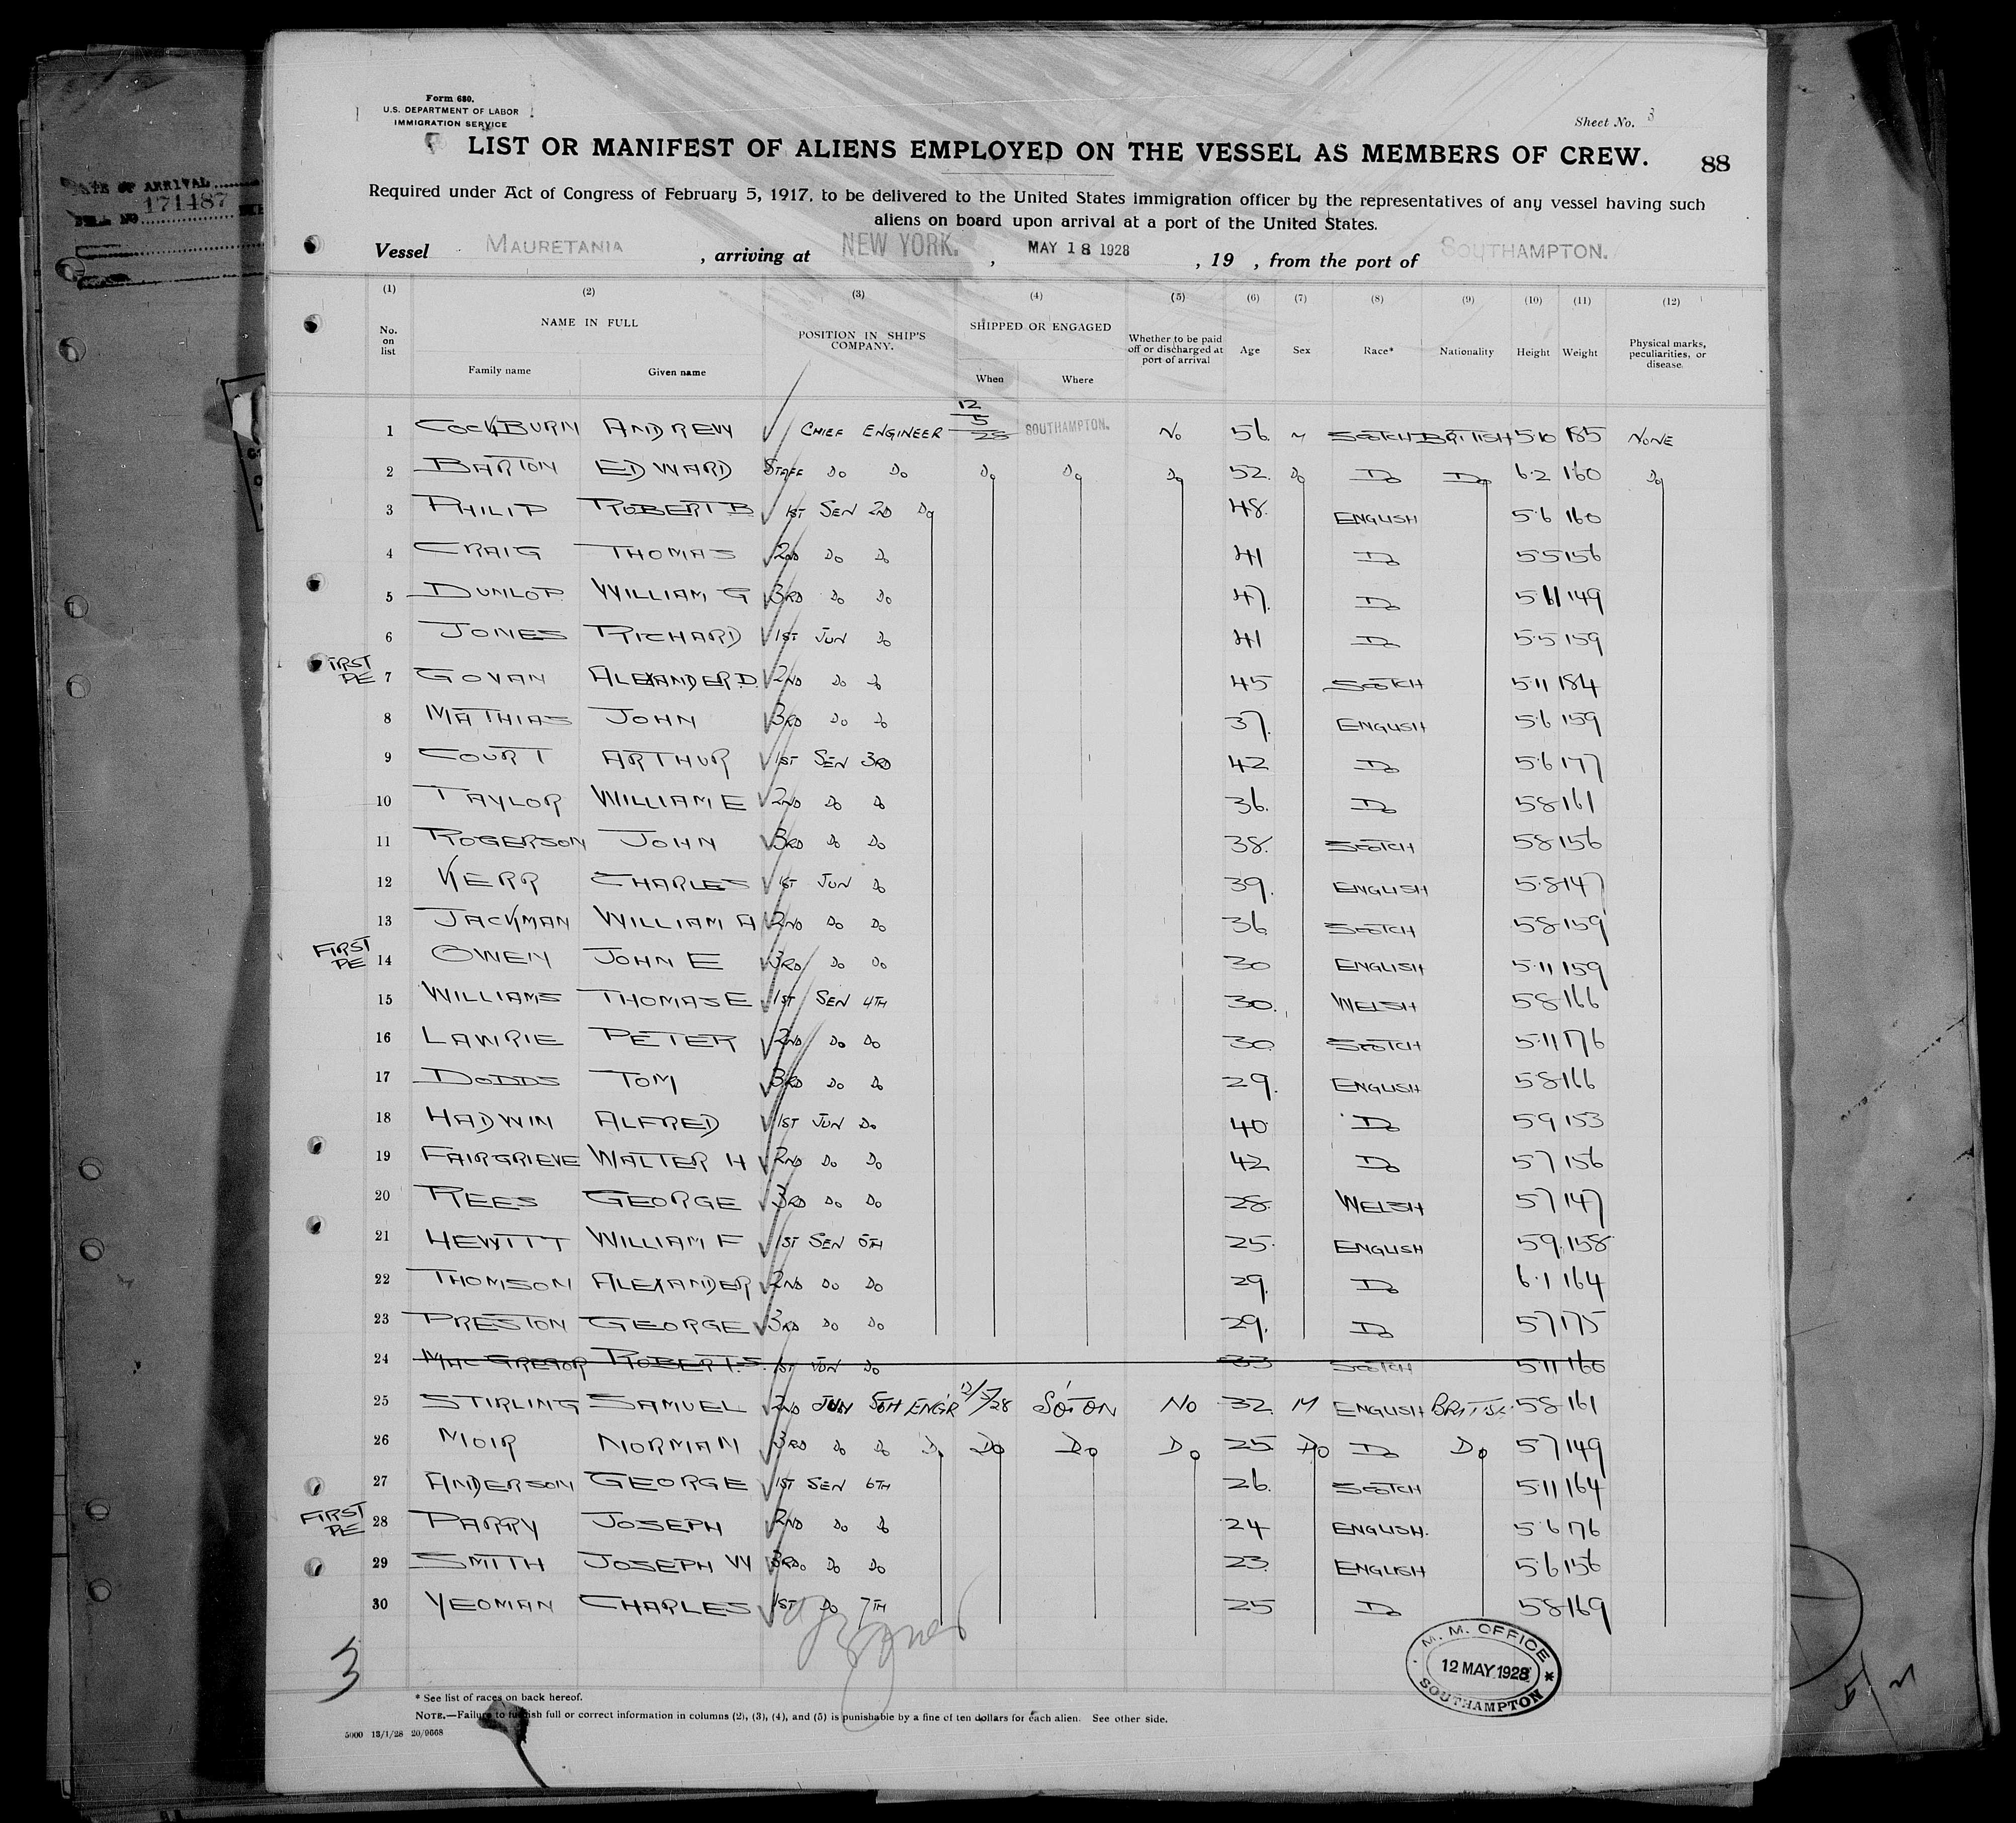 Form 680.
U.S. DEPARTMENT OF LABOR
IMMIGRATION SERVICE
Sheet No. 3
LIST OR MANIFEST OF ALIENS EMPLOYED ON THE VESSEL AS MEMBERS OF CREW.
88
Required under Act of Congress of February 5, 1917, to be delivered to the United States immigration officer by the representatives of any vessel having such
aliens on board upon arrival at a port of the United States.
DATE OF ARRIVAL
171487
Vessel MAURETANIA , arriving at NEW YORK. , MAY 18 1928 , 19 , from the port of SOUTHAMPTON.
(1) (2) (3) (4) (5) (6) (7) (8) (9) (10) (11) (12)
No. on list NAME IN FULL Family name Given name POSITION IN SHIP'S COMPANY. SHIPPED OR ENGAGED When Where Whether to be paid off or discharged at port of arrival Age Sex Race* Nationality Height Weight Physical marks, peculiarities, or disease.
1 COCKBURN ANDREW CHIEF ENGINEER 12/5/28 SOUTHAMPTON. NO 56 M SCOTCH BRITISH 5.10 185 NONE
2 BARTON EDWARD STAFF DO DO DO DO DO 52. DO DO DO 6.2 160 DO
3 PHILIP ROBERT B 1ST SEN 2ND DO 48. ENGLISH 5.6 160
4 CRAIG THOMAS 2ND DO DO 41 DO 5.5 156
5 DUNLOP WILLIAM G 3RD DO DO 47. DO 149
6 JONES RICHARD 1ST JUN DO 41 DO 5.5 159
FIRST PE 7 GOVAN ALEXANDER.D. 2ND DO DO 45 SCOTCH 5.11 184
8 MATHIAS JOHN 3RD DO DO 37. ENGLISH 5.6 159
9 COURT ARTHUR 1ST SEN 3RD 42 DO 5.6 177
10 TAYLOR WILLIAM E 2ND DO DO 36. DO 5.8 161
11 ROGERSON JOHN 3RD DO DO 38. SCOTCH 5.8 156
12 KERR CHARLES 1ST JUN DO 39. ENGLISH 5.8 147
13 JACKMAN WILLIAM A 2ND DO DO 36 SCOTCH 5.8 159
FIRST PE 14 OWEN JOHN E 3RD DO DO 30 ENGLISH 5.11 159
15 WILLIAMS THOMAS E 1ST SEN 4TH 30. WELSH 5.8 166
16 LAWRIE PETER 2ND DO DO 30 SCOTCH 5.11 176
17 DODDS TOM 3RD DO DO 29. ENGLISH 5.8 166
18 HADWIN ALFRED 1ST JUN DO 40 DO 5.9 153
19 FAIRGRIEVE WALTER H 2ND DO DO 42 DO 5.7 156
20 REES GEORGE 3RD DO DO 28. WELSH 5.7 147
21 HEWITT WILLIAM F 1ST SEN 5TH 25. ENGLISH 5.9 158
22 THOMSON ALEXANDER 2ND DO DO 29. DO 6.1 164
23 PRESTON GEORGE 3RD DO DO 29. DO 5.7 175
24 MACGREGOR ROBERT.S. 1ST JUN DO 33 SCOTCH 5.11 160
25 STIRLING SAMUEL 2ND JUN 5TH ENGR 12/5/28 SO'TON NO 32. M ENGLISH BRITISH 5.8 161
26 MOIR NORMAN 3RD DO DO DO DO DO DO 25 DO DO DO 5.7 149
27 ANDERSON GEORGE 1ST SEN 6TH 26. SCOTCH 5.11 164
FIRST PE 28 PARRY JOSEPH 2ND DO DO 24 ENGLISH. 5.6 176
29 SMITH JOSEPH W 3RD. DO DO 23. ENGLISH 5.6 156
30 YEOMAN CHARLES 1ST DO 7TH 25 DO 5.8 169
3
M. M. OFFICE
12 MAY 1928
SOUTHAMPTON
* See list of races on back hereof.
NOTE.—Failure to furnish full or correct information in columns (2), (3), (4), and (5) is punishable by a fine of ten dollars for each alien. See other side.
5000 13/1/28 20/9668